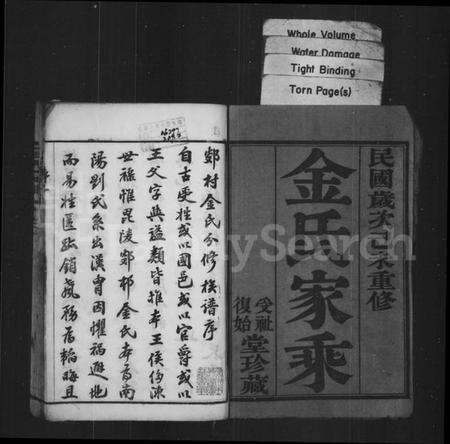 Whole Volume
Water Damage
Tight Binding
Torn Page(s)
民國歲次己未重修
金氏家乘
受祉
復始
堂珍藏
鄈村金氏分修族譜序
自古受姓或以國邑或以官爵或以
王父字與謚類皆推本王侯
世祿惟毘陵鄈邨金氏本南
陽劉氏系出漢胄因懼禍避地
而易姓匿跡銷聲務居晦且
MySearch